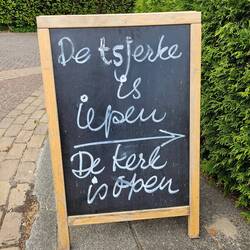 De tsjerke
is
iepen
De kerk
is open